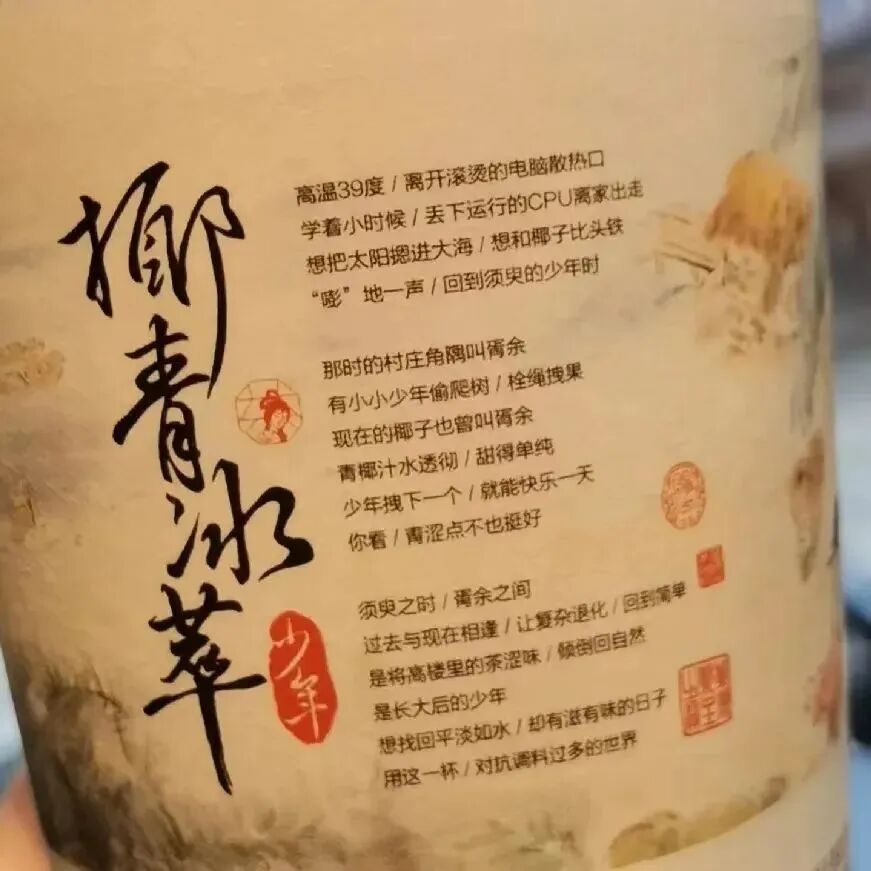 椰青冰萃
少年
高温39度 / 离开滚烫的电脑散热口
学着小时候 / 丢下运行的CPU离家出走
想把太阳摁进大海 / 想和椰子比头铁
“嘭”地一声 / 回到须臾的少年时
那时的村庄角隅叫胥余
有小小少年偷爬树 / 栓绳拽果
现在的椰子也曾叫胥余
青椰汁水透彻 / 甜得单纯
少年拽下一个 / 就能快乐一天
你看 / 青涩点不也挺好
须臾之时 / 胥余之间
过去与现在相逢 / 让复杂退化 / 回到简单
是将高楼里的茶涩味 / 倾倒回自然
是长大后的少年
想找回平淡如水 / 却有滋有味的日子
用这一杯 / 对抗调料过多的世界